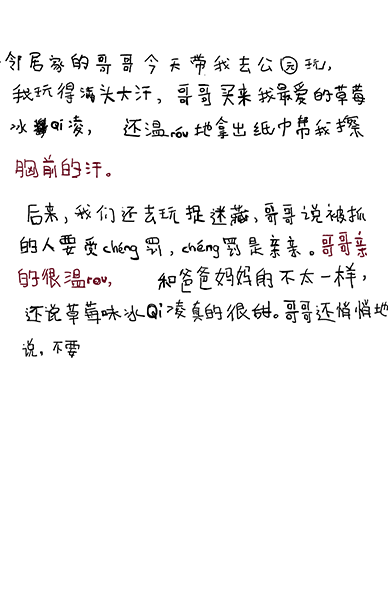 邻居家的哥哥今天带我去公园玩,
我玩得满头大汗,哥哥买来我最爱的草莓
冰Qi凌, 还温róu地拿出纸巾帮我擦
胸前的汗。
后来,我们还去玩捉迷藏,哥哥说被抓
的人要受chéng罚,chéng罚是亲亲。哥哥亲
的很温rou, 和爸爸妈妈的不太一样,
还说草莓味冰Qi凌真的很甜。哥哥还悄悄地
说,不要